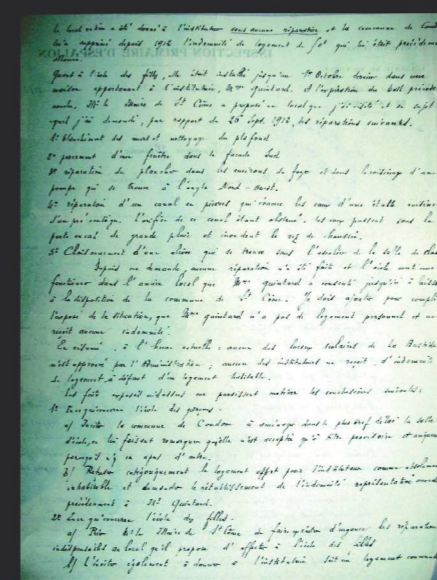 le local entier a été donné à l'instituteur sans aucune réparation et la commune de Cond
lui a supprimé depuis 1912 l'indemnité de logement de f qui lui était précédem
allouée.
Quant à l'école des filles, elle était installée jusqu'au 1er Octobre dernier dans une
maison appartenant à l'institutrice, Mme Quintard, et l'expiration du bail précéde
Mr le Maire de St Côme a proposé un local que j'ai visité et au sujet
quel j'ai demandé, par rapport du 25 Sept. 1912, les réparations suivantes.
1° blanchiment des murs et nettoyage du plafond
2° percement d'une fenêtre dans la façade Sud
3° réparation du plancher dans les environs du foyer et dans le voisinage d'une
pompe qui se trouve à l'angle Nord-Ouest.
4° réparation d'un canal en pierres qui évacue les eaux d'une étable voisine
L'orifice de ce canal étant obstrué, les eaux passent sous la
porte du local de grande pluie et inondent le rez de chaussée.
5° qui se trouve sous l'escalier de la salle de clas
Depuis ma demande, aucune réparation n'a été faite et l'école continue
fonctionner dans l'ancien local que Mme Quintard a consenti jusqu'ici à laisser
à la disposition de la commune de St Côme. Je dois ajouter pour compl
l'exposé de la situation, que Mme Quintard n'a pas de logement personnel et ne
reçoit aucune indemnité.
En résumé, à l'heure actuelle: aucun des locaux scolaires de La Bastide
n'est approuvé par l'Administration; aucun des instituteurs ne reçoit d'indemnité
de logement, à défaut d'un logement habitable.
Les faits exposés ci-dessus me paraissent motiver les conclusions suivantes:
1° En ce qui concerne l'école des garçons.
a) Inviter la commune de Condom à aménager dans le plus bref délai la salle
d'école, en lui faisant remarquer qu'elle n'est acceptée qu'à titre provisoire et uniquem
parce qu'il n'y en a pas d'autre.
b) Refuser catégoriquement le logement offert pour l'instituteur comme absolument
inhabitable et demander le rétablissement de l'indemnité représentative
précédemment à Mr Quintard.
2° En ce qui concerne l'école des filles.
a) Prier Mr le Maire de St Côme de faire procéder d'urgence les réparations
indispensables au local qu'il propose d'affecter à l'école des filles
b) L'inviter également à donner à l'institutrice soit un logement convenab